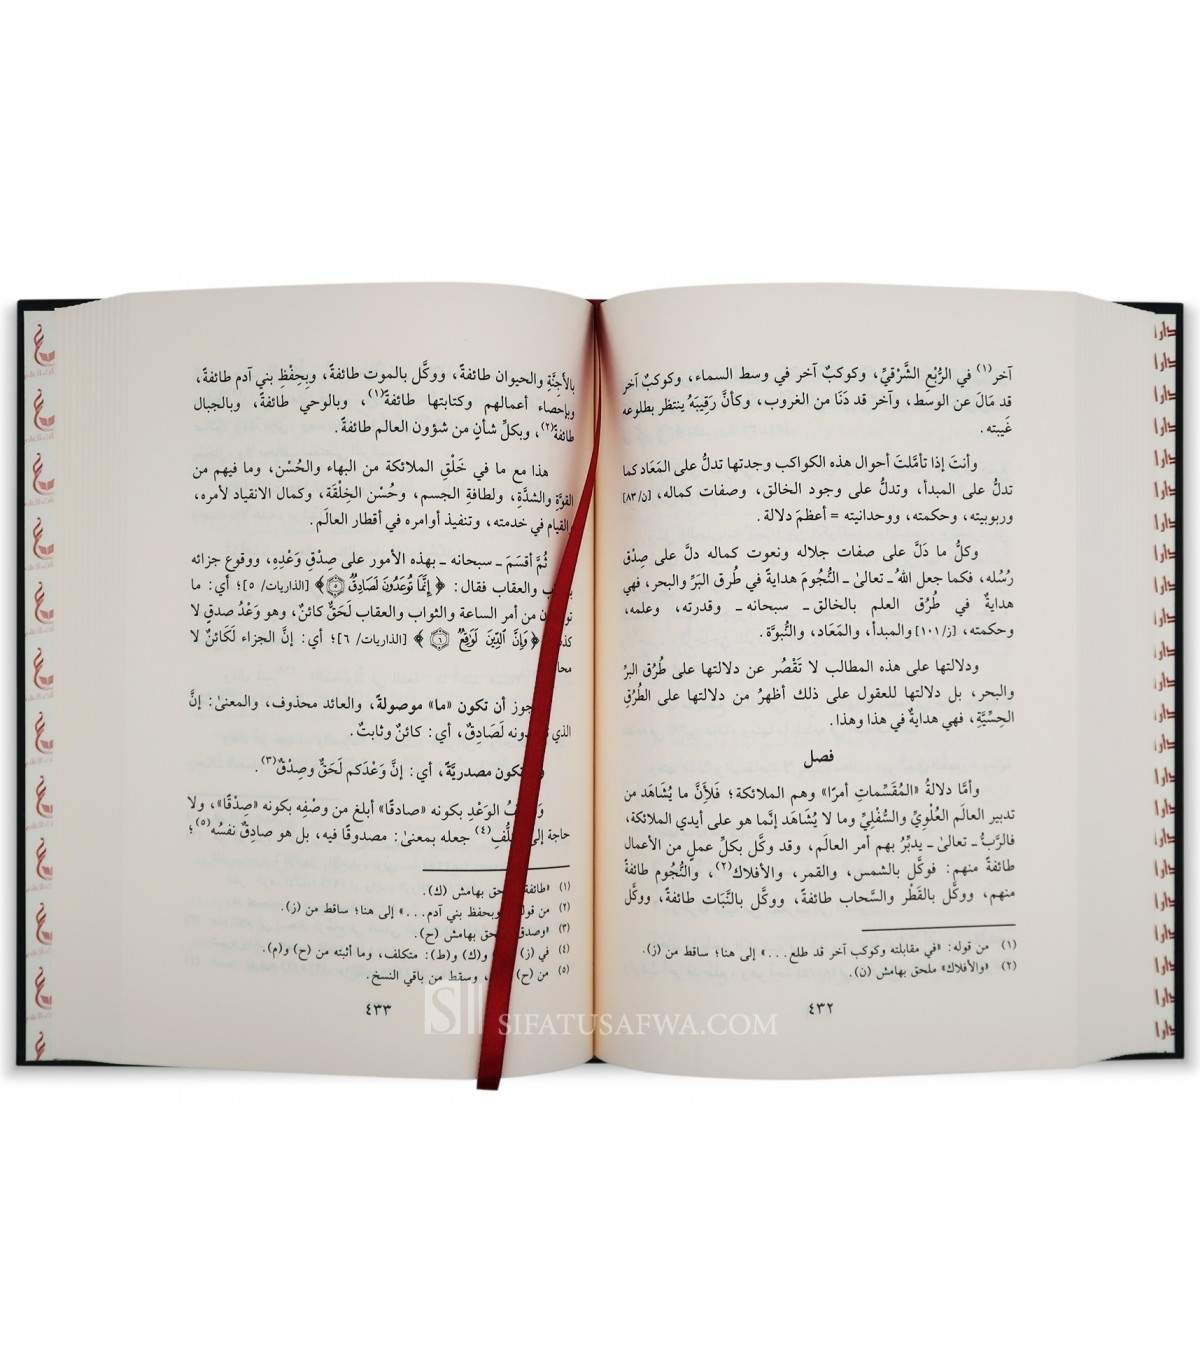 آخر(١) في الرُّبْعِ الشَّرْقيِّ، وكوكبٌ آخر في وسط السماء، وكوكبٌ آخر
قد مَالَ عن الوسَط، وآخر قد دَنَا من الغروب، وكأنَّ رَقِيبَهُ ينتظر بطلوعه
غَيبته.
وأنتَ إذا تأمَّلتَ أحوال هذه الكواكب وجدتها تدلُّ على المَعَاد كما
تدلُّ على المبدأ، وتدلُّ على وجود الخالق، وصفات كماله، [ن/٨٣]
وربوبيته، وحكمته، ووحدانيته = أعظمَ دلالة.
وكلُّ ما دَلَّ على صفات جلاله ونعوت كماله دلَّ على صِدْقِ
رُسُله، فكما جعل اللهُ ـ تعالىٰ ـ النُّجُومَ هدايةً في طُرق البَرِّ والبحر، فهي
هدايةٌ في طُرُق العلم بالخالق ـ سبحانه ـ وقدرته، وعلمه،
وحكمته، [ز/١٠١] والمبدأ، والمَعَاد، والنُّبوَّة.
ودلالتها على هذه المطالب لا تَقْصُر عن دلالتها على طُرُق البرِّ
والبحر، بل دلالتها للعقول على ذلك أظهرُ من دلالتها على الطُرُقِ
الحِسِّيَّةِ، فهي هدايةٌ في هذا وهذا.
فصل
وأمَّا دلالةُ «المُقَسِّماتِ أمرًا» وهم الملائكة؛ فلأَنَّ ما يُشَاهَد من
تدبير العالَم العُلْوِيِّ والسُّفْلِيِّ وما لا يُشَاهَد إنَّما هو على أيدي الملائكة،
فالرَّبُّ ـ تعالىٰ ـ يدبِّرُ بهم أمر العالَم، وقد وكَّل بكلِّ عملٍ من الأعمال
طائفةً منهم: فوكَّل بالشمس، والقمر، والأفلاك(٢)، والنُّجُوم طائفةً
منهم، ووكَّل بالقَطْر والسَّحاب طائفةً، ووكَّل بالنَّبَات طائفةً، ووكَّل
(١) من قوله: «في مقابلته وكوكب آخر قد طلع...» إلى هنا؛ ساقط من (ز).
(٢) «والأفلاك» ملحق بهامش (ن).
٤٣٢
بالأَجِنَّةِ والحيوان طائفةً، ووكَّل بالموت طائفةً، وبِحِفْظِ بني آدم طائفةً،
وبإحصاء أعمالهم وكتابتها طائفةً(١)، وبالوحي طائفةً، وبالجبال
طائفةً(٢)، وبكلِّ شأنٍ من شؤون العالم طائفةً.
هذا مع ما في خَلْقِ الملائكة من البهاء والحُسْن، وما فيهم من
القوَّةِ والشدَّةِ، ولطافةِ الجسم، وحُسْن الخِلْقَة، وكمال الانقياد لأمره،
والقيام في خدمته، وتنفيذ أوامره في أقطار العالَم.
ثُمَّ أقسَمَ ـ سبحانه ـ بهذه الأمور على صِدْقِ وَعْدِهِ، ووقوع جزائه
والعقاب فقال: ﴿إِنَّمَا تُوعَدُونَ لَصَادِقٌ ٥﴾ [الذاريات/ ٥]؛ أي: ما
من أمر الساعة والثواب والعقاب لَحَقٌّ كائنٌ، وهو وَعْدُ صدقٍ لا
﴿وَإِنَّ الدِّينَ لَوَاقِعٌ ٦﴾ [الذاريات/ ٦]؛ أي: إنَّ الجزاء لَكائنٌ لا
أن تكون «ما» موصولةً، والعائد محذوف، والمعنىٰ: إنَّ
الذي لَصَادِقٌ، أي: كائنٌ وثابتٌ.
تكون مصدريَّةً، أي: إنَّ وَعْدَكم لَحَقٌّ وصِدْقٌ(٣).
الوَعْدِ بكونه «صادقًا» أبلغ من وصْفِه بكونه «صِدْقًا»، ولا
حاجة إلى (٤) جعله بمعنىٰ: مصدوقًا فيه، بل هو صادِقٌ نفسُه(٥)؛
(١) «طائفة» بهامش (ك).
(٢) من وبحفظ بني آدم...» إلى هنا؛ ساقط من (ز).
(٣) «وصدق» بهامش (ح).
(٤) في (ز) و(ك) و(ط): متكلف، وما أثبته من (ح) و(م).
(٥) من (ح) وسقط من باقي النسخ.
٤٣٣
SIFATUSAFWA.COM